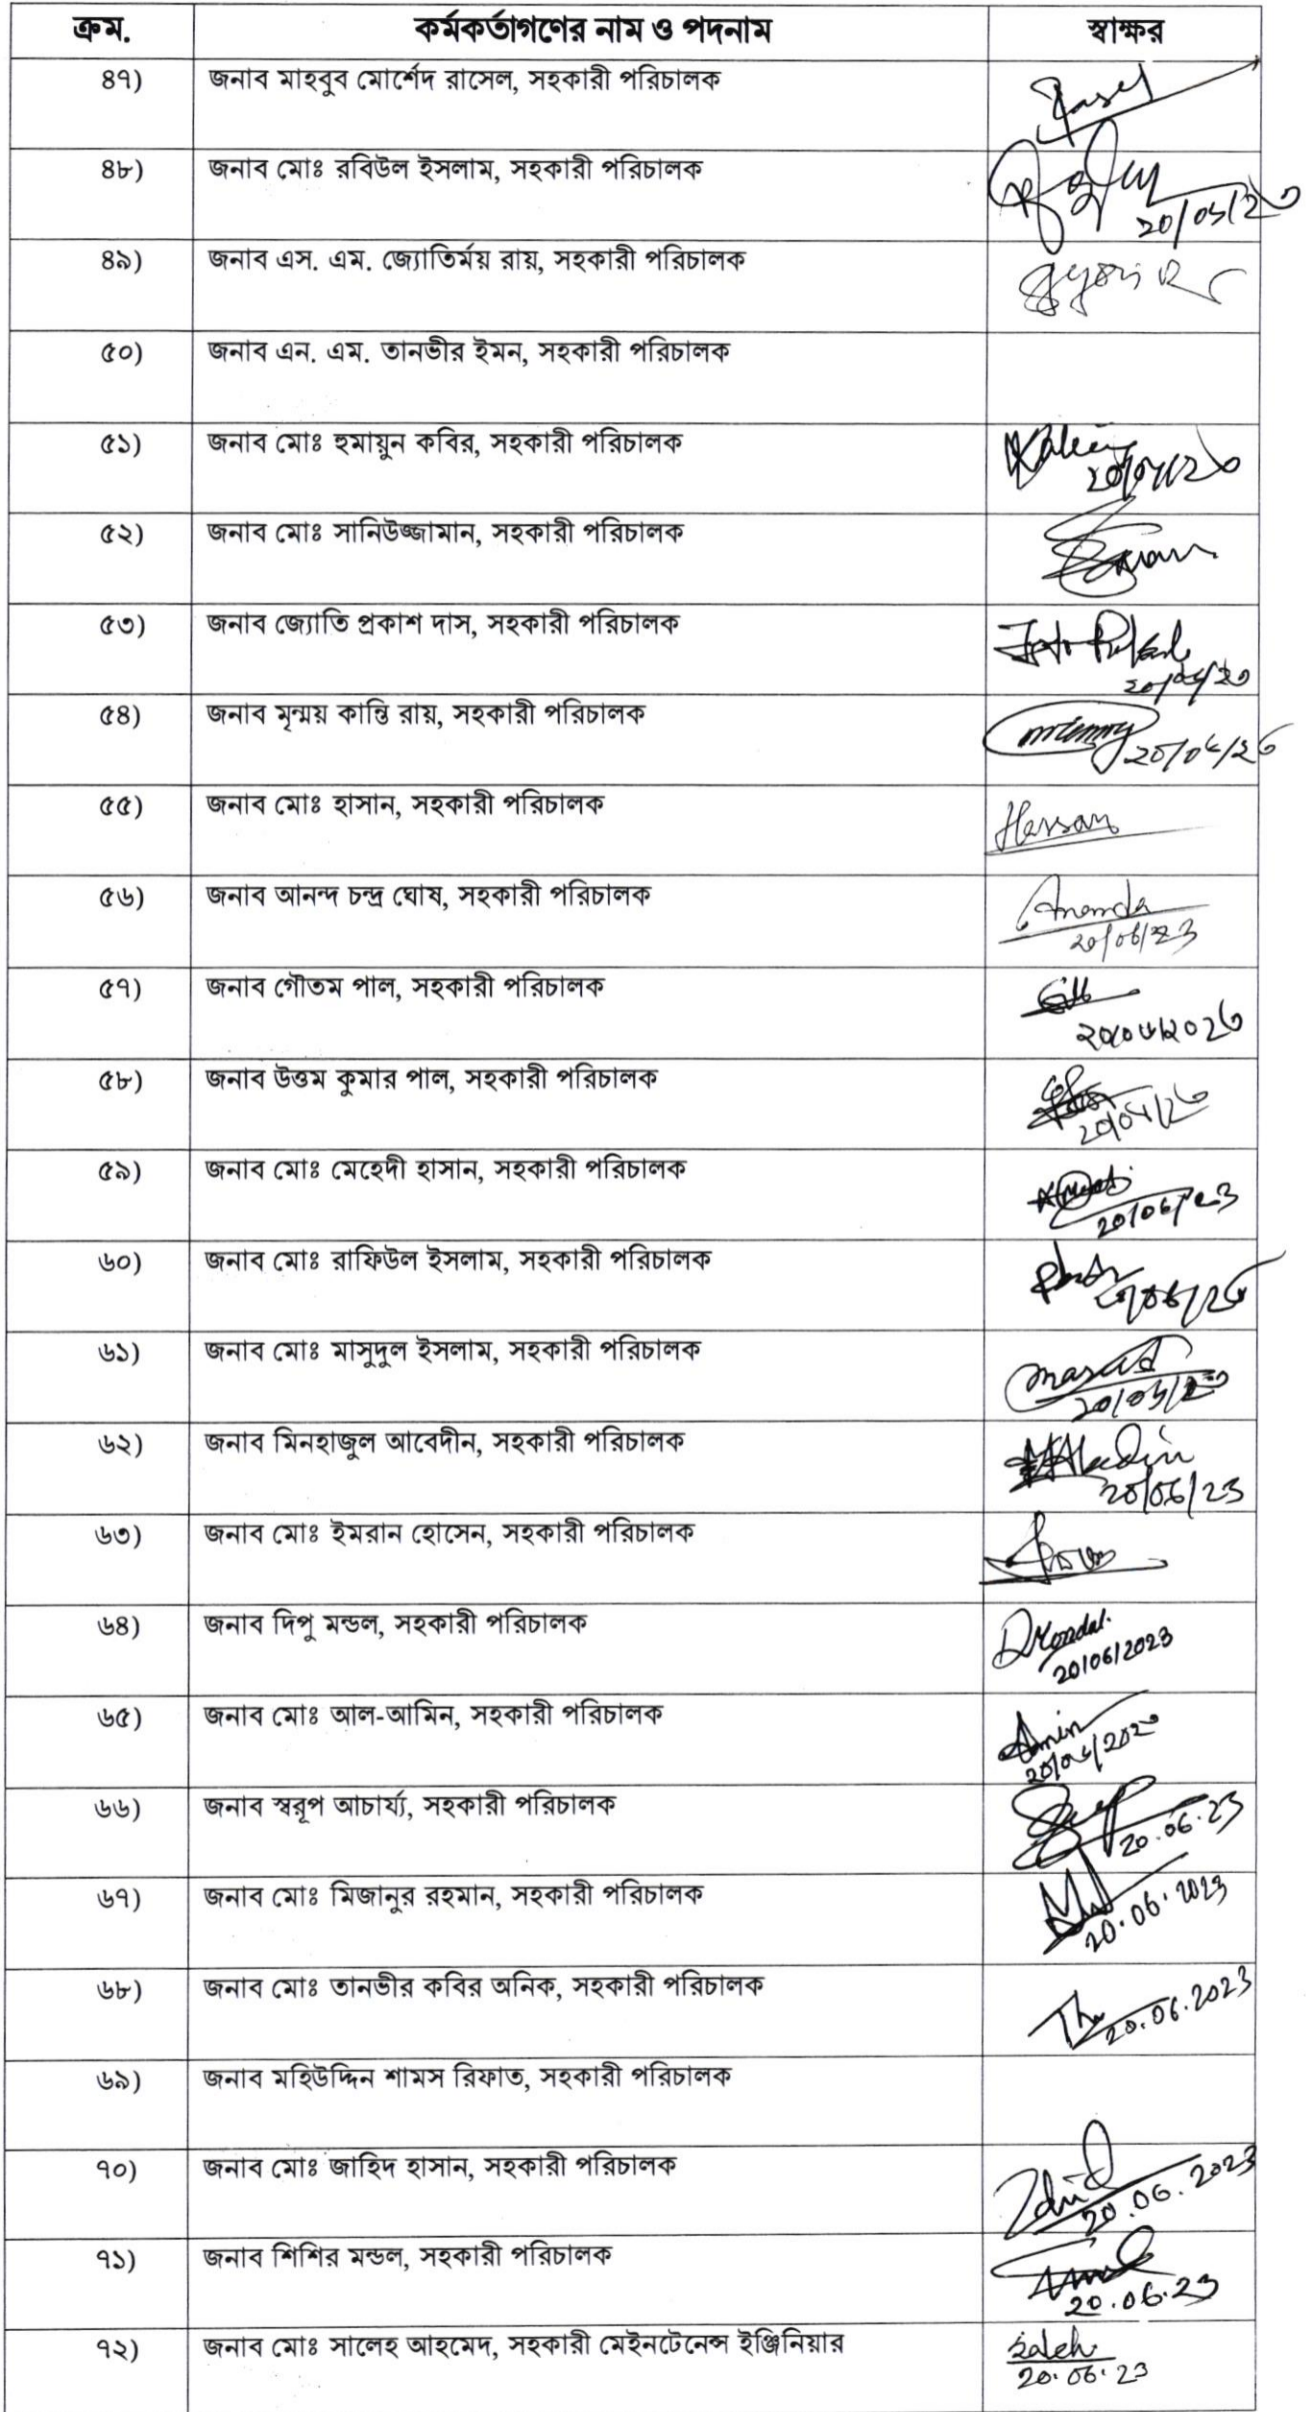 ক্রম. কর্মকর্তাগণের নাম ও পদনাম স্বাক্ষর
৪৭) জনাব মাহবুব মোর্শেদ রাসেল, সহকারী পরিচালক Rasel
৪৮) জনাব মোঃ রবিউল ইসলাম, সহকারী পরিচালক
২০/০৬/২৩
৪৯) জনাব এস. এম. জ্যোতির্ময় রায়, সহকারী পরিচালক
৫০) জনাব এন. এম. তানভীর ইমন, সহকারী পরিচালক
৫১) জনাব মোঃ হুমায়ুন কবির, সহকারী পরিচালক
২০/০৬/২৩
৫২) জনাব মোঃ সানিউজ্জামান, সহকারী পরিচালক
৫৩) জনাব জ্যোতি প্রকাশ দাস, সহকারী পরিচালক
২০/০৬/২৩
৫৪) জনাব মৃন্ময় কান্তি রায়, সহকারী পরিচালক
২০/০৬/২৩
৫৫) জনাব মোঃ হাসান, সহকারী পরিচালক Hassan
৫৬) জনাব আনন্দ চন্দ্র ঘোষ, সহকারী পরিচালক Ananda
20/06/23
৫৭) জনাব গৌতম পাল, সহকারী পরিচালক
২০/০৬/২০২৩
৫৮) জনাব উত্তম কুমার পাল, সহকারী পরিচালক
২০/০৬/২৩
৫৯) জনাব মোঃ মেহেদী হাসান, সহকারী পরিচালক
20/06/23
৬০) জনাব মোঃ রাফিউল ইসলাম, সহকারী পরিচালক
৬১) জনাব মোঃ মাসুদুল ইসলাম, সহকারী পরিচালক Masud
২০/০৬/২৩
৬২) জনাব মিনহাজুল আবেদীন, সহকারী পরিচালক
20/06/23
৬৩) জনাব মোঃ ইমরান হোসেন, সহকারী পরিচালক
৬৪) জনাব দিপু মন্ডল, সহকারী পরিচালক DMondal.
20/06/2023
৬৫) জনাব মোঃ আল-আমিন, সহকারী পরিচালক Amin
৬৬) জনাব স্বরূপ আচার্য্য, সহকারী পরিচালক
20.06.23
৬৭) জনাব মোঃ মিজানুর রহমান, সহকারী পরিচালক
20.06.2023
৬৮) জনাব মোঃ তানভীর কবির অনিক, সহকারী পরিচালক
20.06.2023
৬৯) জনাব মহিউদ্দিন শামস রিফাত, সহকারী পরিচালক
৭০) জনাব মোঃ জাহিদ হাসান, সহকারী পরিচালক Zahid
20.06.2023
৭১) জনাব শিশির মন্ডল, সহকারী পরিচালক
20.06.23
৭২) জনাব মোঃ সালেহ আহমেদ, সহকারী মেইনটেনেন্স ইঞ্জিনিয়ার Saleh
20.06.23